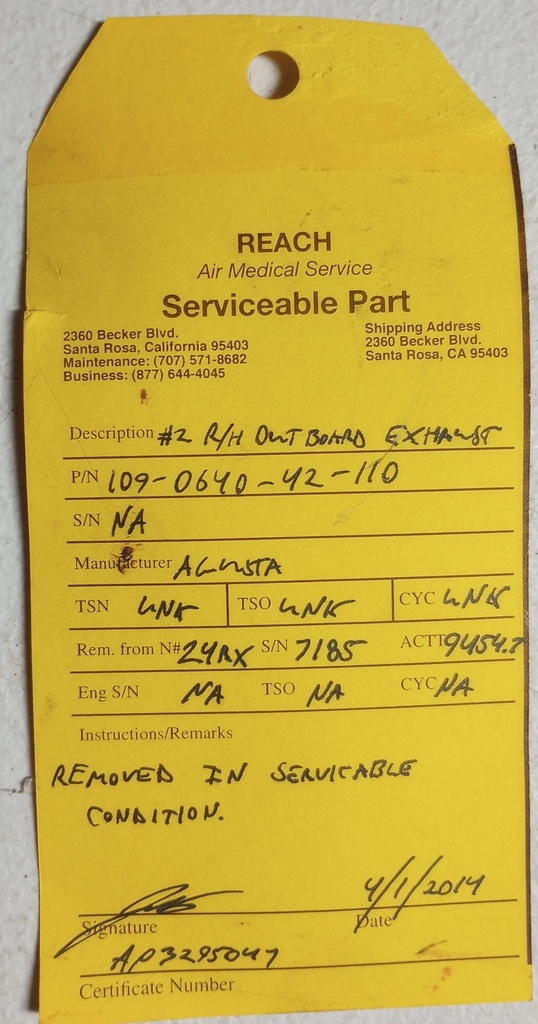 REACH
Air Medical Service
Serviceable Part
2360 Becker Blvd.
Santa Rosa, California 95403
Maintenance: (707) 571-8682
Business: (877) 644-4045
Shipping Address
2360 Becker Blvd.
Santa Rosa, CA 95403
Description #2 R/H OUTBOARD EXHAUST
P/N 109-0640-42-110
S/N NA
Manufacturer AGUSTA
TSN UNK TSO UNK CYC UNK
Rem. from N# 24RX S/N 7185 ACTT 9454.7
Eng S/N NA TSO NA CYC NA
Instructions/Remarks
REMOVED IN SERVICABLE
CONDITION.
4/1/2014
Signature Date
AP3295047
Certificate Number